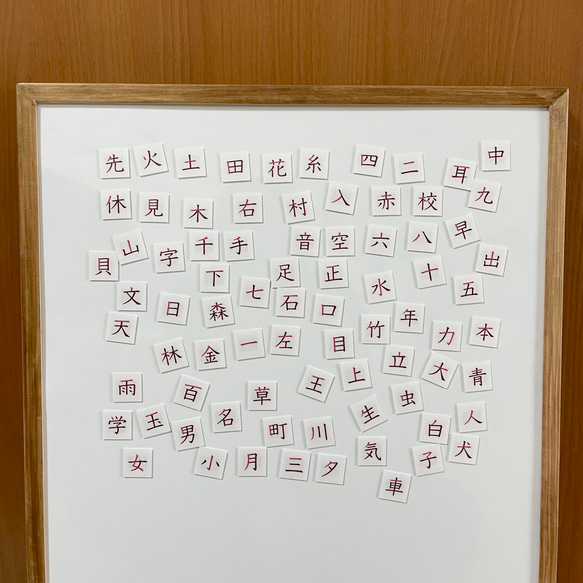 先 火 土 田 花 糸 四 二 耳 中
休 見 木 右 村 入 赤 校 九
貝 山 字 千 手 音 空 六 八 早 出
文 日 下 森 七 足 石 正 口 水 十 五
天 林 金 一 左 目 竹 年 力 本
雨 百 草 王 上 立 大 青
学 玉 男 名 町 川 生 虫 白 人
女 小 月 三 夕 気 車 子 犬